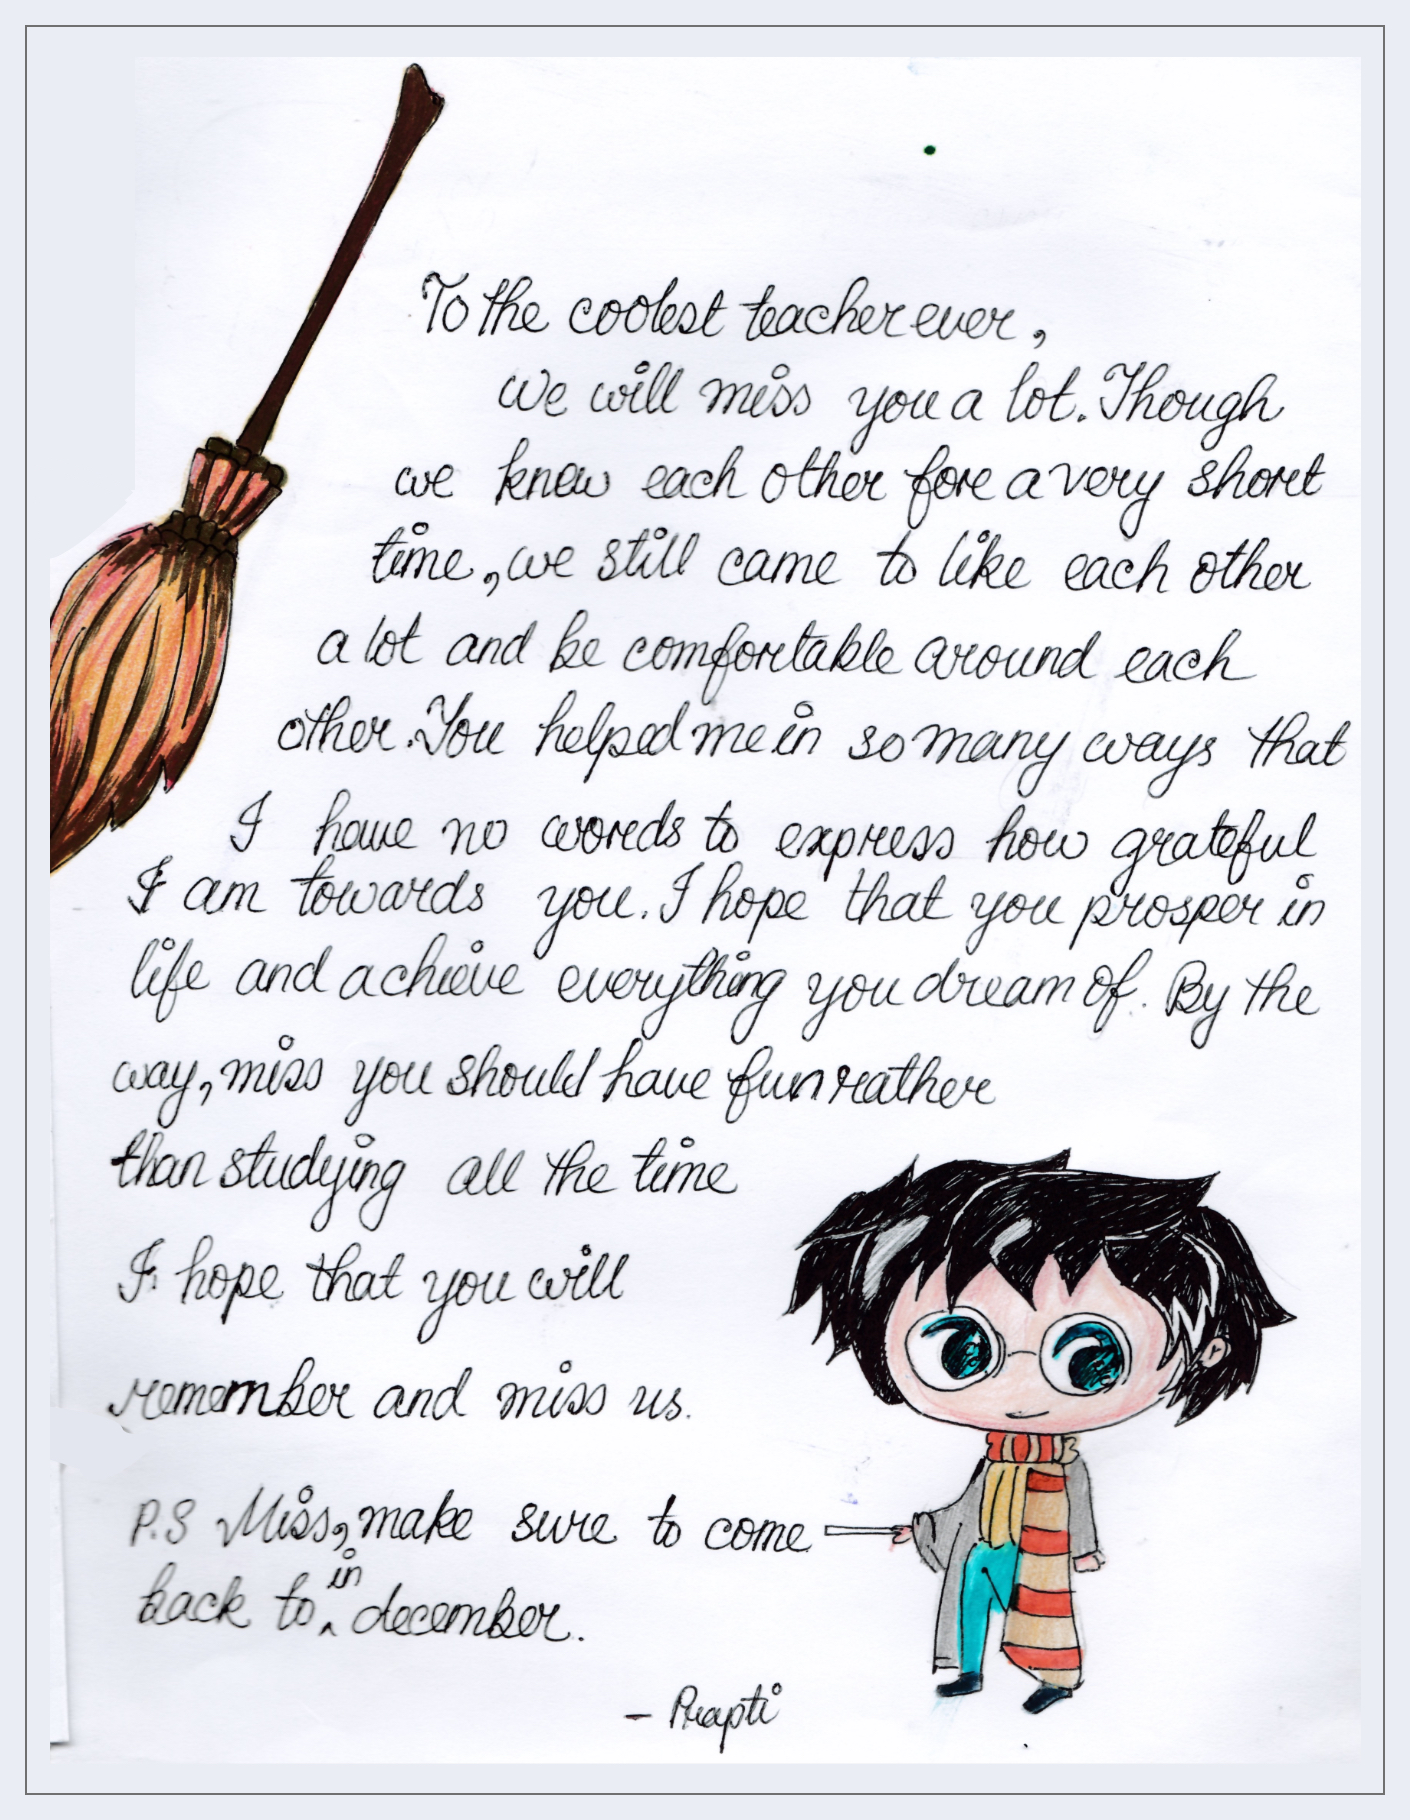 To the coolest teacher ever,
we will miss you a lot. Though
we knew each other fore a very short
time, we still came to like each other
a lot and be comfortable around each
other. You helped me in so many ways that
I have no words to express how grateful
I am towards you. I hope that you prosper in
life and achieve everything you dream of. By the
way, miss you should have fun rather
than studying all the time
I hope that you will
remember and miss us.
P.S Miss, make sure to come
back to in december.
- Prapti